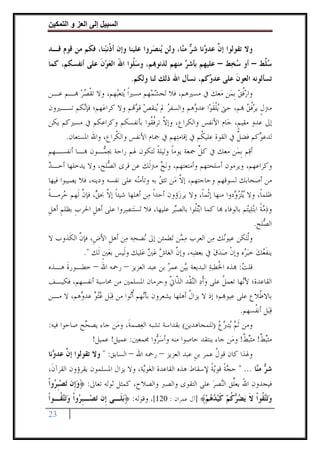 السبيل إلى العز و التمكين
ولا تقولوا إنَّ عدوَّنا شرٌّ منَّا، ولن يُنصَروا علينا وإن أَذنَبْنا، فكم من قوم قـــد
سُلِّط – أو سُخِط – عليهم بأشرَّ منهم لذنوبهم. وسَلُوا الله العَوْنَ على أنفسكم، كما
تسألونه العون على عدوِّكم، نسأل الله ذلك لنا ولكم.
وارْفُقْ بمَن مَعك في مسيرهم، فلا تُجشِّمْهم مسيراً يُتعِبُهم، ولا تُقصِّرْ بهم عـــن
منزلٍ يرفُقُ بهم، حتى يَلْقَوْا عدوَّهم والسفرُ لم يُنقِصْ قوَّتَهم ولا كراعَهم؛ فإنَّكم تسيـــرون
إلى عدو مقيم، جَامِّ الأنفس والكراع، وإلاَّ ترفُقوا بأنفسكم وكراعكم في مسيركم يكن
لعدوِّكم فضلٌ في القوة عليكم في إقامتِهم في جمام الأنفس والكُراع، والله المستعان.
أقِمْ بمن معك في كلِّ جمعة يوماً وليلةً لتكون لهم راحة يجمُّـــون بهـــا أنفســـهم
وكراعهم، ويرمون أسلحتهم وأمتعتهم، ونَحِّ منزلَك عن قرى الصُّلح، ولا يدخلها أحـــدٌ
من أصحابك لسوقهم وحاجتهم، إلاَّ مَن تَثِقُ به وتأمنُه على نفسه ودينه، فلا يصيبوا فيها
ظلماً، ولا يتزوَّدوا منها إثْماً، ولا يرزؤون أحداً مِن أهلها شيئاً إلاَّ بحقٍّ، فإنَّ لهم حُرمـــةً
وذِمَّةً ابْتُلِيتُم بالوفاء بها كما ابتُلُوا بالصَّبر عليها، فلا تستنصروا على أهلِ الحربِ بظلم أهل
الصُّلح.
ولْتَكن عيونُك مِن العرب مِمَّن تَطمئن إلى نُصحِه مِن أهل الأرض، فإنَّ الكذوب لا
يَنفعُك خَبَره وإن صَدَق في بعضِه، وإنَّ الغاشَّ عَيْنٌ عليك وليس بِعَين لَك ".
قلت: هذه الخُطبة البديعة تبيِّن عن عمر بن عبد العزيز – رحمه الله – خطـــورةَ هـــذه
القاعدة؛ لأنَّها تعملُ على وَأْدِ النَّقْدِ الذَّاتي وحرمان المسلمين من محاسبة أنفسهم، فكيـــف
بالاطِّلاع على عيوبهم؛ إذ لا يزال أهلها يشعرون بأنَّهم أُتوا من قِبَلِ عَدُوٍّ، فَهُم، لا مـــن
قِبَلِ أنفُسِهم.
ومن ثَمَّ تُدرِّعُ (للمجاهدين) بقداسة تشبه العِصمةَ، ومَن جاء يصحِّحُ صاحوا فيه:
مثبِّطٌ! مثبِّط! ومَن جاء ينتقد حاصوا منه وأسَرُّوا بجمعين: عميلٌ! عميل!
ولهذا كان قولُ عمر بن عبد العزيز – رحمه الله – السابق: " ولا تقولوا إنَّ عدوَّنا
شرٌّ منَّا ... " حجَّةً قويَّةً لإسقاط هذه القاعدة الغَوِيَّة، ولا يزال المسلمون يقرؤون القرآن،
فيجدون الله يعلِّق النَّصرَ على التقوى والصبر والصلاح، كمثل قوله تعالى: ﴿وَإِن تَصْبِرُوا
وَتَتَّقُوا لاَ يَضُرُّكُمْ كَيْدُهُمْ﴾ [آل عمران : 120]، وقوله: ﴿بَلَـــى إِن تَصْبِـــرُوا وَتَتَّقُـــوا
23